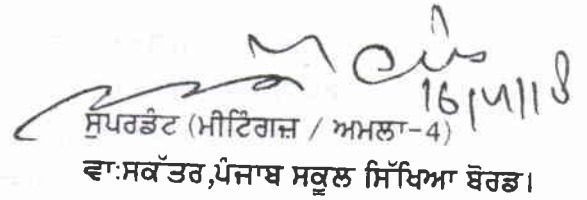 ਸੁਪਰਡੰਟ (ਮੀਟਿੰਗਜ਼ / ਅਮਲਾ-4)
ਵਾ:ਸਕੱਤਰ,ਪੰਜਾਬ ਸਕੂਲ ਸਿੱਖਿਆ ਬੋਰਡ।